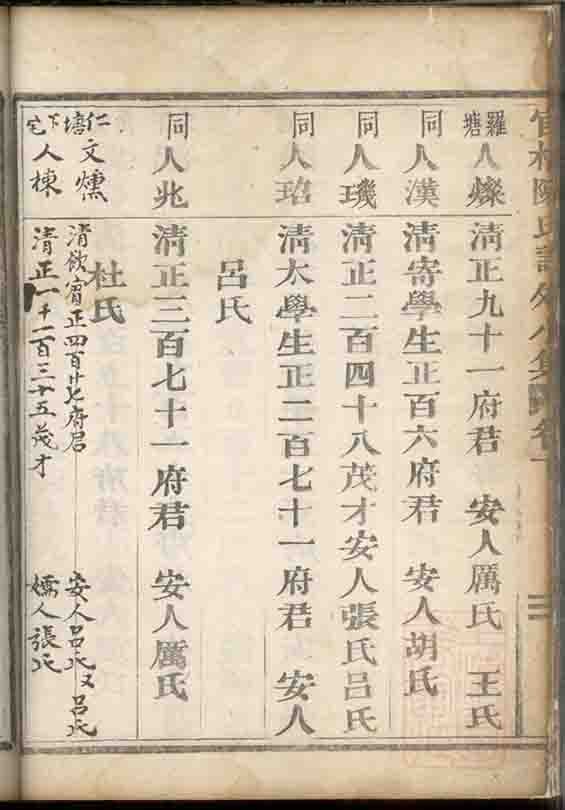 官村陳氏
羅塘 人爍 清正九十一府君 安人厲氏 王氏
同 人漢 清寄學生正百六府君 安人胡氏
同 人璣 清正二百四十八茂才 安人張氏呂氏
同 人琀 清太學生正二百七十一府君 安人
呂氏
同 人兆 清正三百七十一府君 安人厲氏
杜氏
仁塘 文燸 清飲賓正四百廿七府君 安人呂氏又呂氏
下宅 人棟 清正一千一百三十五茂才 孺人張氏